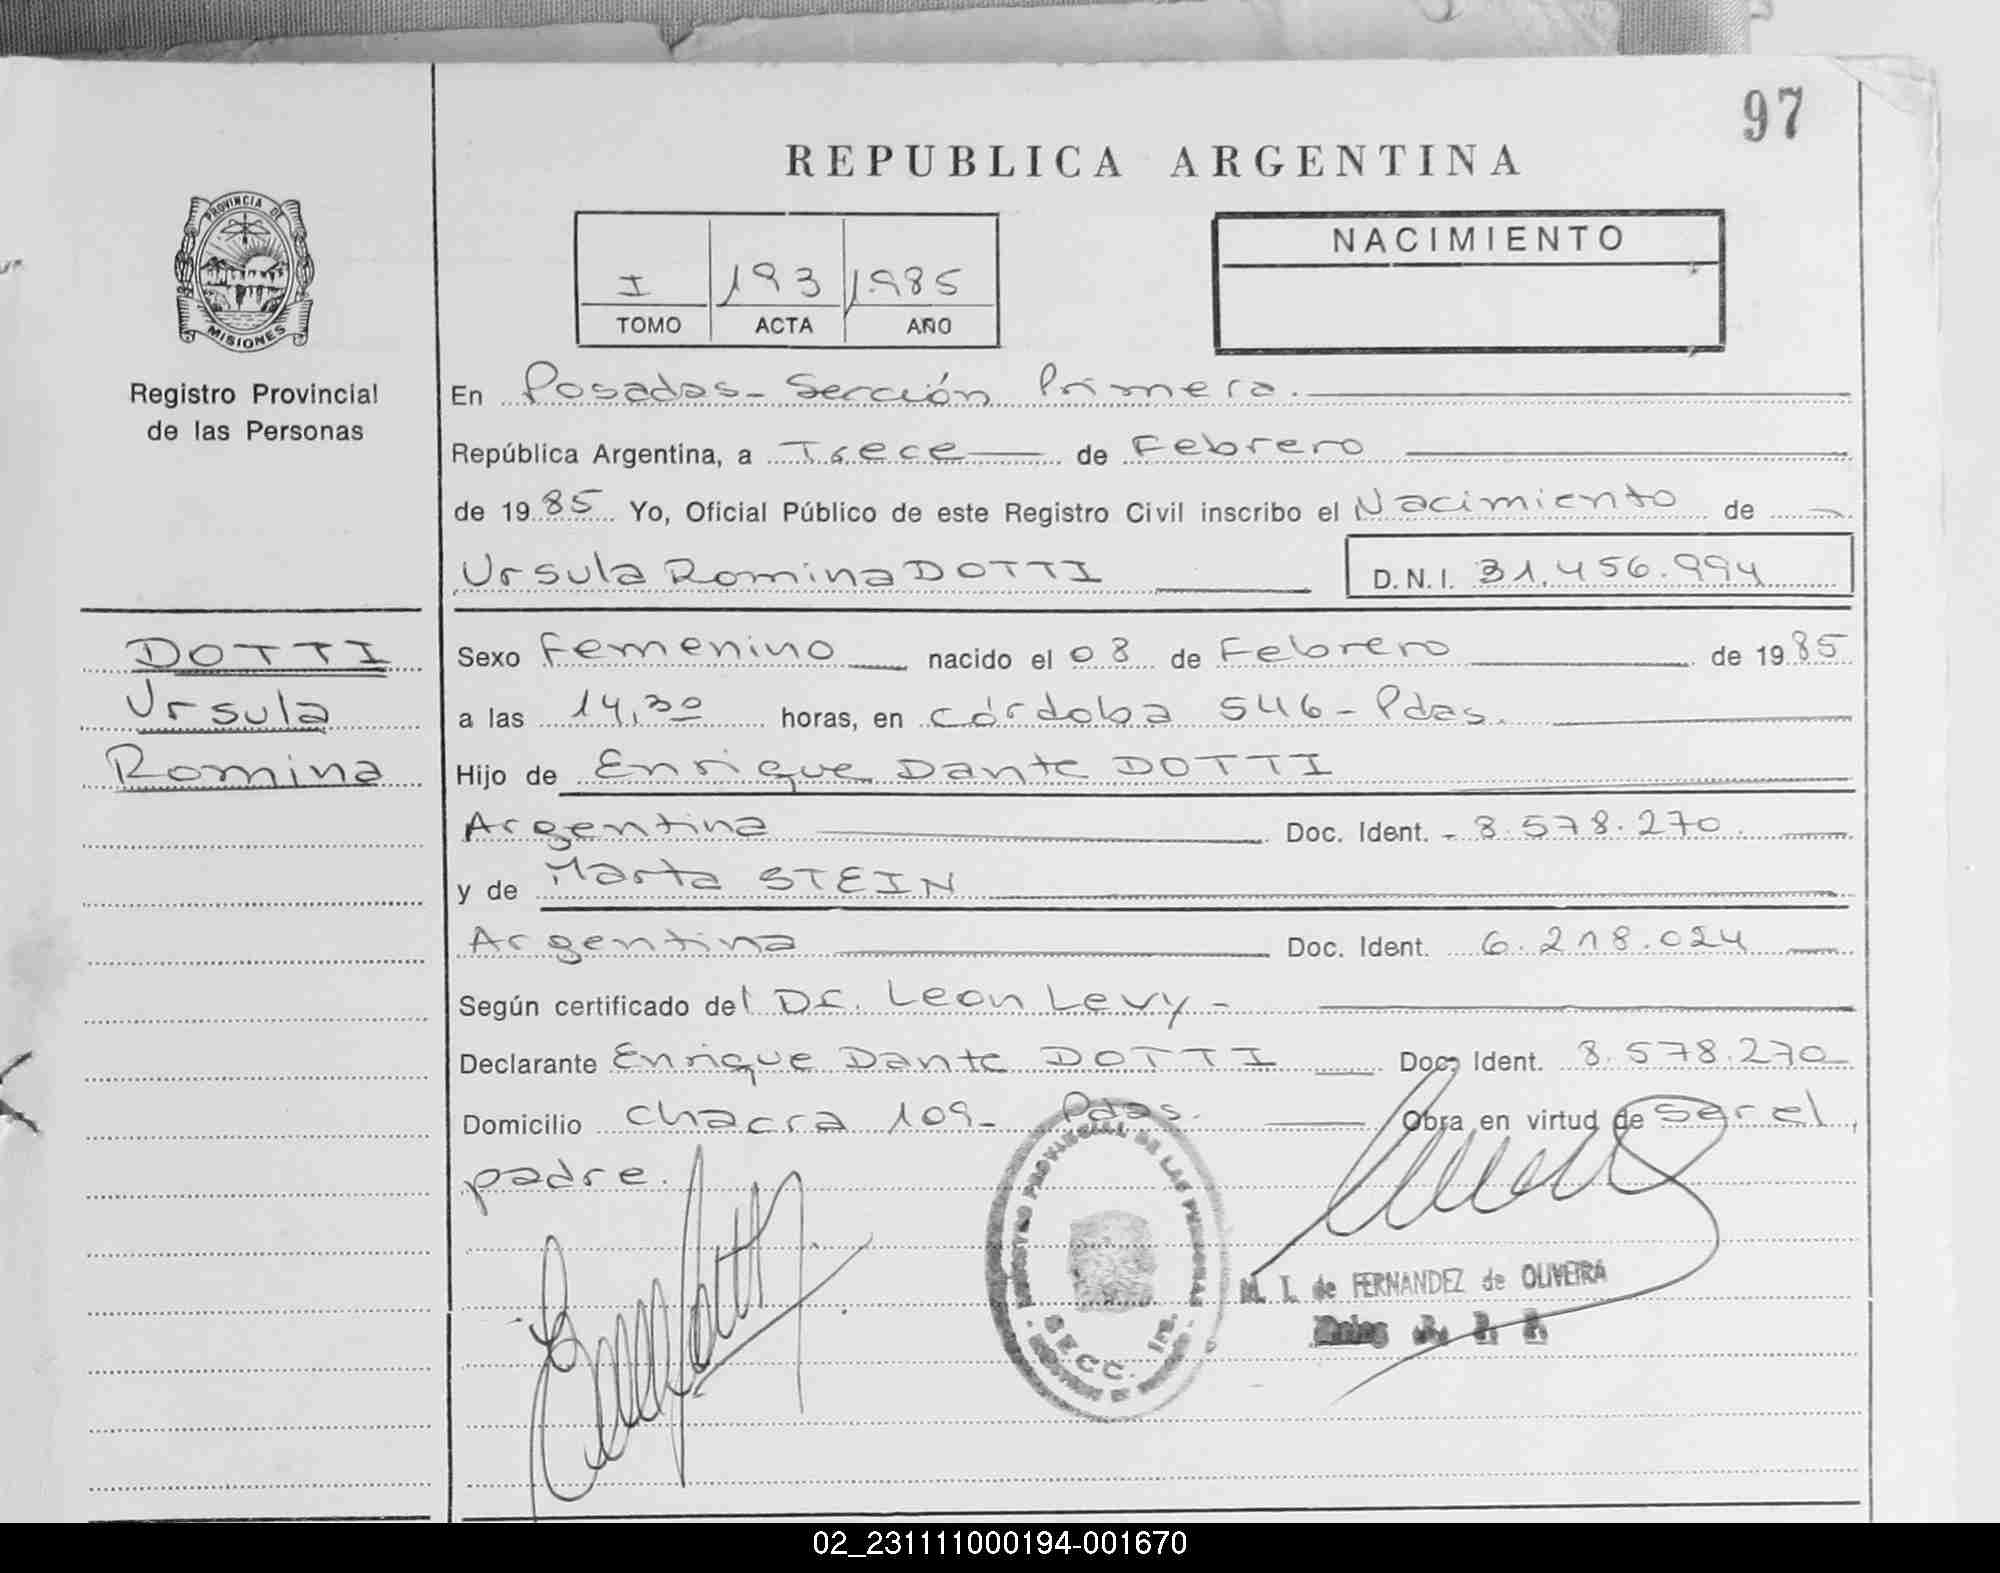 97
REPUBLICA ARGENTINA
PROVINCIA DE
MISIONES
Registro Provincial
de las Personas
I 193 1985
TOMO ACTA AÑO
NACIMIENTO
En Posadas - Sección Primera.
República Argentina, a Trece de Febrero
de 1985 Yo, Oficial Público de este Registro Civil inscribo el Nacimiento de
Ursula Romina DOTTI D.N.I. 31.456.994
DOTTI
Ursula
Romina
Sexo Femenino nacido el 08 de Febrero de 1985
a las 14,30 horas, en Córdoba 546 - Pdas.
Hijo de Enrique Dante DOTTI
Argentina Doc. Ident. - 8.578.270
y de Marta STEIN
Argentina Doc. Ident. 6.218.024
Según certificado del Dr. Leon Levy -
Declarante Enrique Dante DOTTI Doc. Ident. 8.578.270
Domicilio Chacra 109 - Pdas. Obra en virtud de ser el
padre.
REGISTRO PROVINCIAL DE LAS PERSONAS
SECC. 1ra.
M. I. de FERNANDEZ de OLIVEIRA
02_231111000194-001670